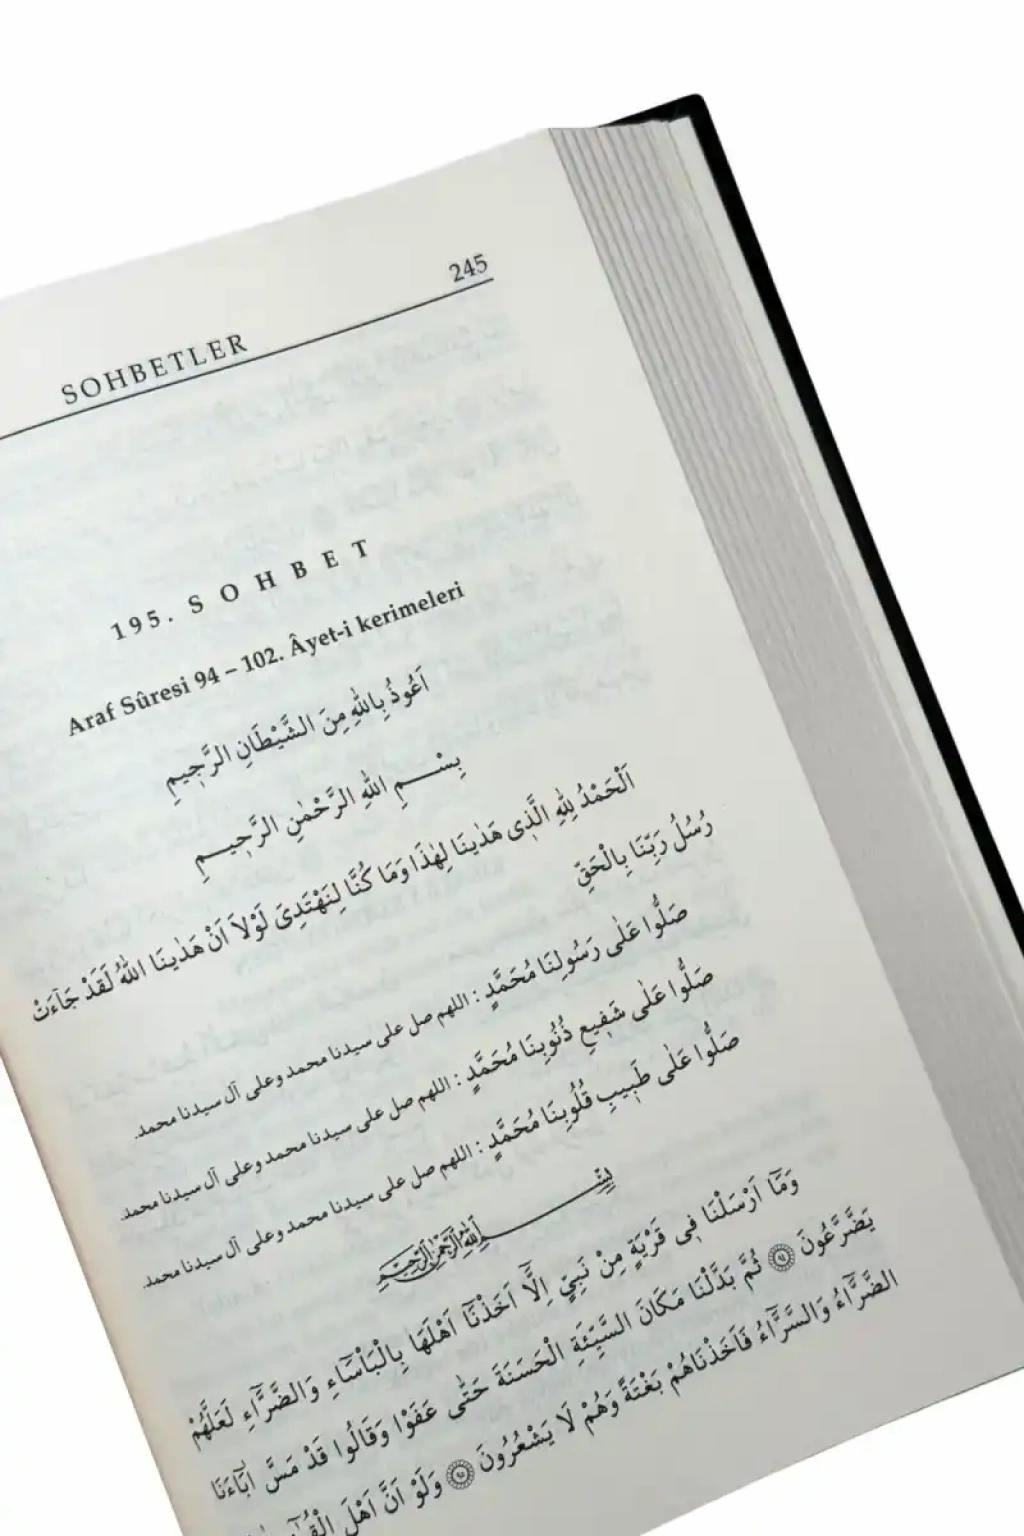 245
SOHBETLER
195. SOHBET
Araf Sûresi 94 – 102. Âyet-i kerimeleri
اَعُوذُ بِاللّٰهِ مِنَ الشَّيْطَانِ الرَّج۪يمِ
بِسْـــمِ اللّٰهِ الرَّحْمٰنِ الرَّح۪يـــمِ
اَلْحَمْدُ لِلّٰهِ الَّذ۪ى هَدٰينَا لِهٰذَا وَمَا كُنَّا لِنَهْتَدِىَ لَوْلاَ اَنْ هَدٰينَا اللّٰهُ لَقَدْ جَٓاءَتْ
رُسُلُ رَبِّنَا بِالْحَقِّ
صَلُّوا عَلٰى رَسُولِنَا مُحَمَّدٍ : اللهم صل على سيدنا محمد وعلى آل سيدنا محمد.
صَلُّوا عَلٰى شَف۪يعِ ذُنُوبِنَا مُحَمَّدٍ : اللهم صل على سيدنا محمد وعلى آل سيدنا محمد.
صَلُّوا عَلٰى طَب۪يبِ قُلُوبِنَا مُحَمَّدٍ : اللهم صل على سيدنا محمد وعلى آل سيدنا محمد.
بِسْمِ اللّٰهِ الرَّحْمٰنِ الرَّحِيمِ
وَمَٓا اَرْسَلْنَا ف۪ى قَرْيَةٍ مِنْ نَبِيٍّ اِلَّٓا اَخَذْنَٓا اَهْلَهَا بِالْبَأْسَٓاءِ وَالضَّرَّٓاءِ لَعَلَّهُمْ
يَضَّرَّعُونَ ﴿٩٤﴾ ثُمَّ بَدَّلْنَا مَكَانَ السَّيِّئَةِ الْحَسَنَةَ حَتّٰى عَفَوْا وَقَالُوا قَدْ مَسَّ اٰبَٓاءَنَا
الضَّرَّٓاءُ وَالسَّرَّٓاءُ فَاَخَذْنَاهُمْ بَغْتَةً وَهُمْ لَا يَشْعُرُونَ ﴿٩٥﴾ وَلَوْ اَنَّ اَهْلَ الْقُرٰٓى